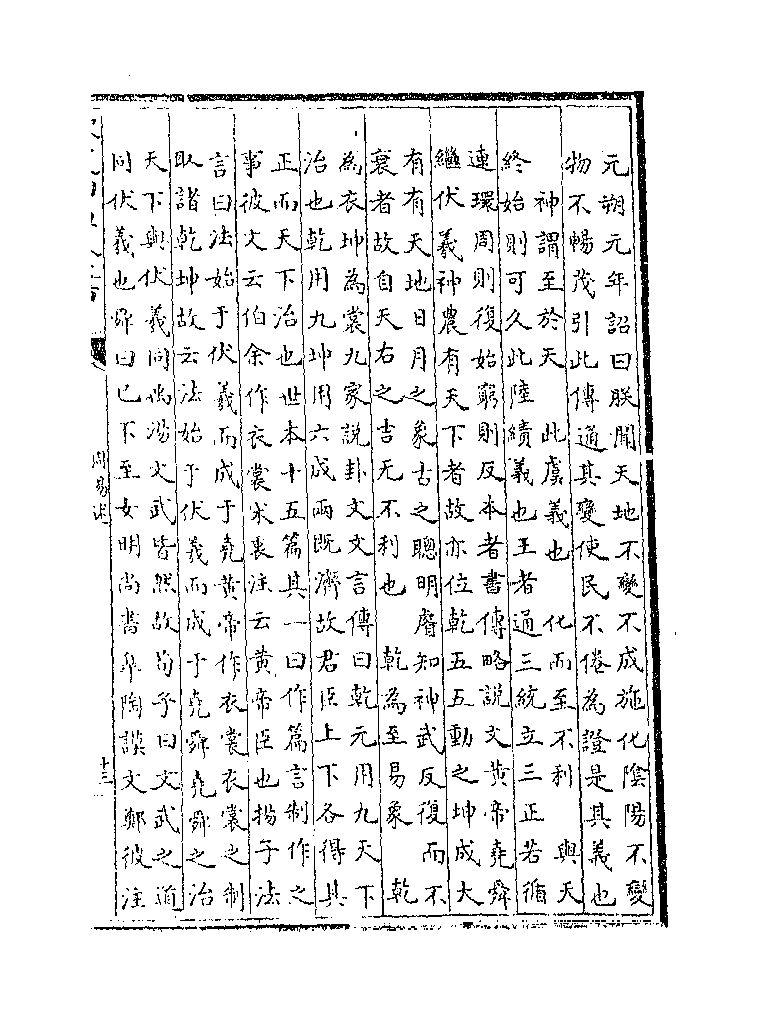 元朔元年詔曰朕聞天地不變不成施化陰陽不變
物不暢茂引此傳通其變使民不倦為證是其義也
神謂至於天　此虞義也　化而至不利　與天
終始則可久此陸績義也王者通三統立三正若循
連環周則復始窮則反本者書傳略說文黃帝堯舜
繼伏羲神農有天下者故亦位乾五五動之坤成大
有有天地日月之象古之聰明睿知神武反復而不
衰者故自天右之吉无不利也　乾為至易象　乾
為衣坤為裳九家說卦文文言傳曰乾元用九天下
治也乾用九坤用六成兩既濟故君臣上下各得其
正而天下治也世本十五篇其一曰作篇言制作之
事彼文云伯余作衣裳宋衷注云黃帝臣也揚子法
言曰法始于伏羲而成于堯黃帝作衣裳衣裳之制
取諸乾坤故云法始于伏羲而成于堯舜堯舜之治
天下與伏羲同禹湯文武皆然故荀子曰文武之道
同伏羲也舜曰已下至女明尚書皋陶謨文鄭彼注
周易述
十三